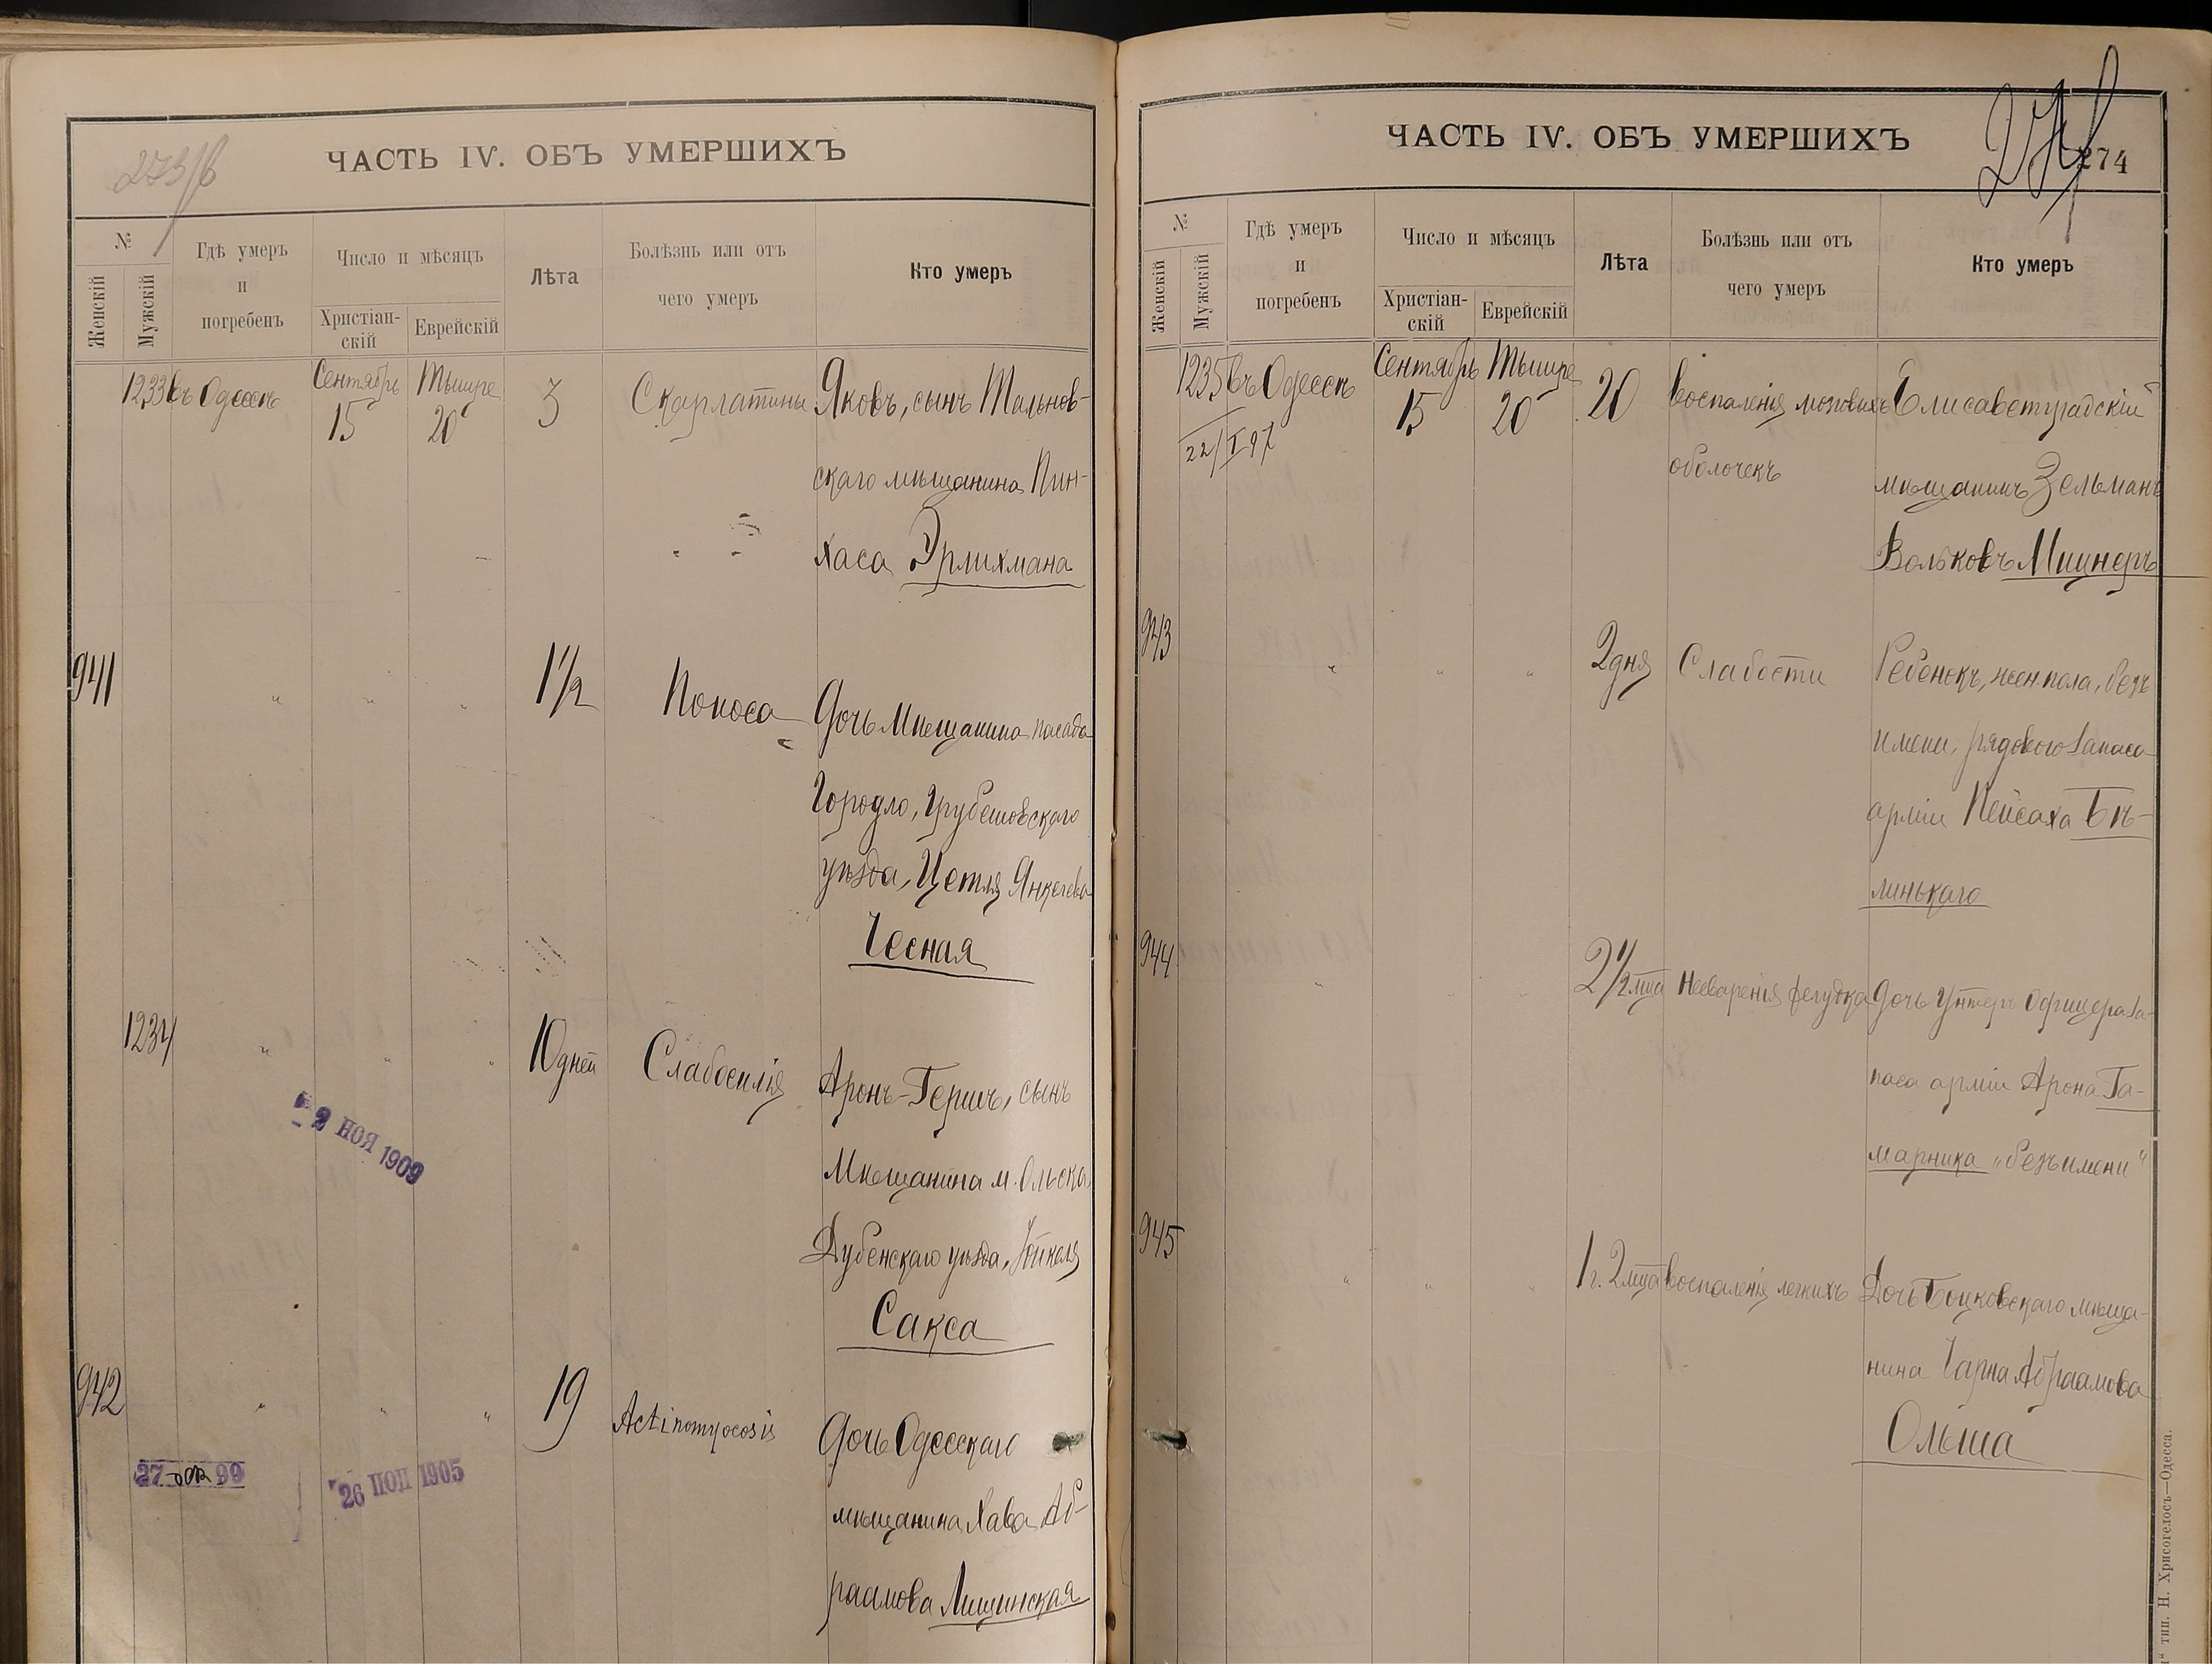 273/б
ЧАСТЬ IV. ОБЪ УМЕРШИХЪ
№
Женскій
Мужскій
Гдѣ умеръ
и
погребенъ
Число и мѣсяцъ
Христіан-
скій
Еврейскій
Лѣта
Болѣзнь или отъ
чего умеръ
Кто умеръ
1233 въ Одессѣ Сентябрь 15 Тышре 20 3 Скарлатины Яковъ, сынъ Тальнов-
скаго мѣщанина Пин-
хаса Эрлихмана
941 " " " 1 1/2 Поноса Дочь Мѣщанина посада
Городло, Грубешовскаго
уѣзда, Цетля Янкелева
Чесная
1234 " " " 10 дней Слабосилія Аронъ-Гершъ, сынъ
Мѣщанина м. Олыка,
Дубенскаго уѣзда,
Сакса
2 НОЯ 1909
942 " " " 19 Actinomycosis Дочь Одесскаго
мѣщанина Хава Аб-
раамова Лищинская
27 99
26 1905
ЧАСТЬ IV. ОБЪ УМЕРШИХЪ
274
274
№
Женскій
Мужскій
Гдѣ умеръ
и
погребенъ
Число и мѣсяцъ
Христіан-
скій
Еврейскій
Лѣта
Болѣзнь или отъ
чего умеръ
Кто умеръ
1235 въ Одессѣ Сентябрь 15 Тышре 20 20 воспаленія мозговыхъ Елисаветградскій
22/I 97
оболочекъ мѣщанинъ Зельманъ
Вольковъ Мицнеръ
943 " " " 2 дня Слабости Ребенокъ, жен пола, безъ
имени, рядового запаса
арміи Пейсаха Бѣ-
линькаго
944 " " 2 1/2 мца Несваренія желудка Дочь Унтеръ Офицера за-
паса арміи Арона Га-
марника „безъ имени“
945 " " " 1 г. 2 мца воспаленія легкихъ Дочь Боцковскаго мѣща-
нина Чарна Абраамова
Ольша
тип. Н. Хрисогелосъ—Одесса.